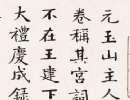 元玉山主人
卷稱其宮詞
不在王建下
大禮慶成録